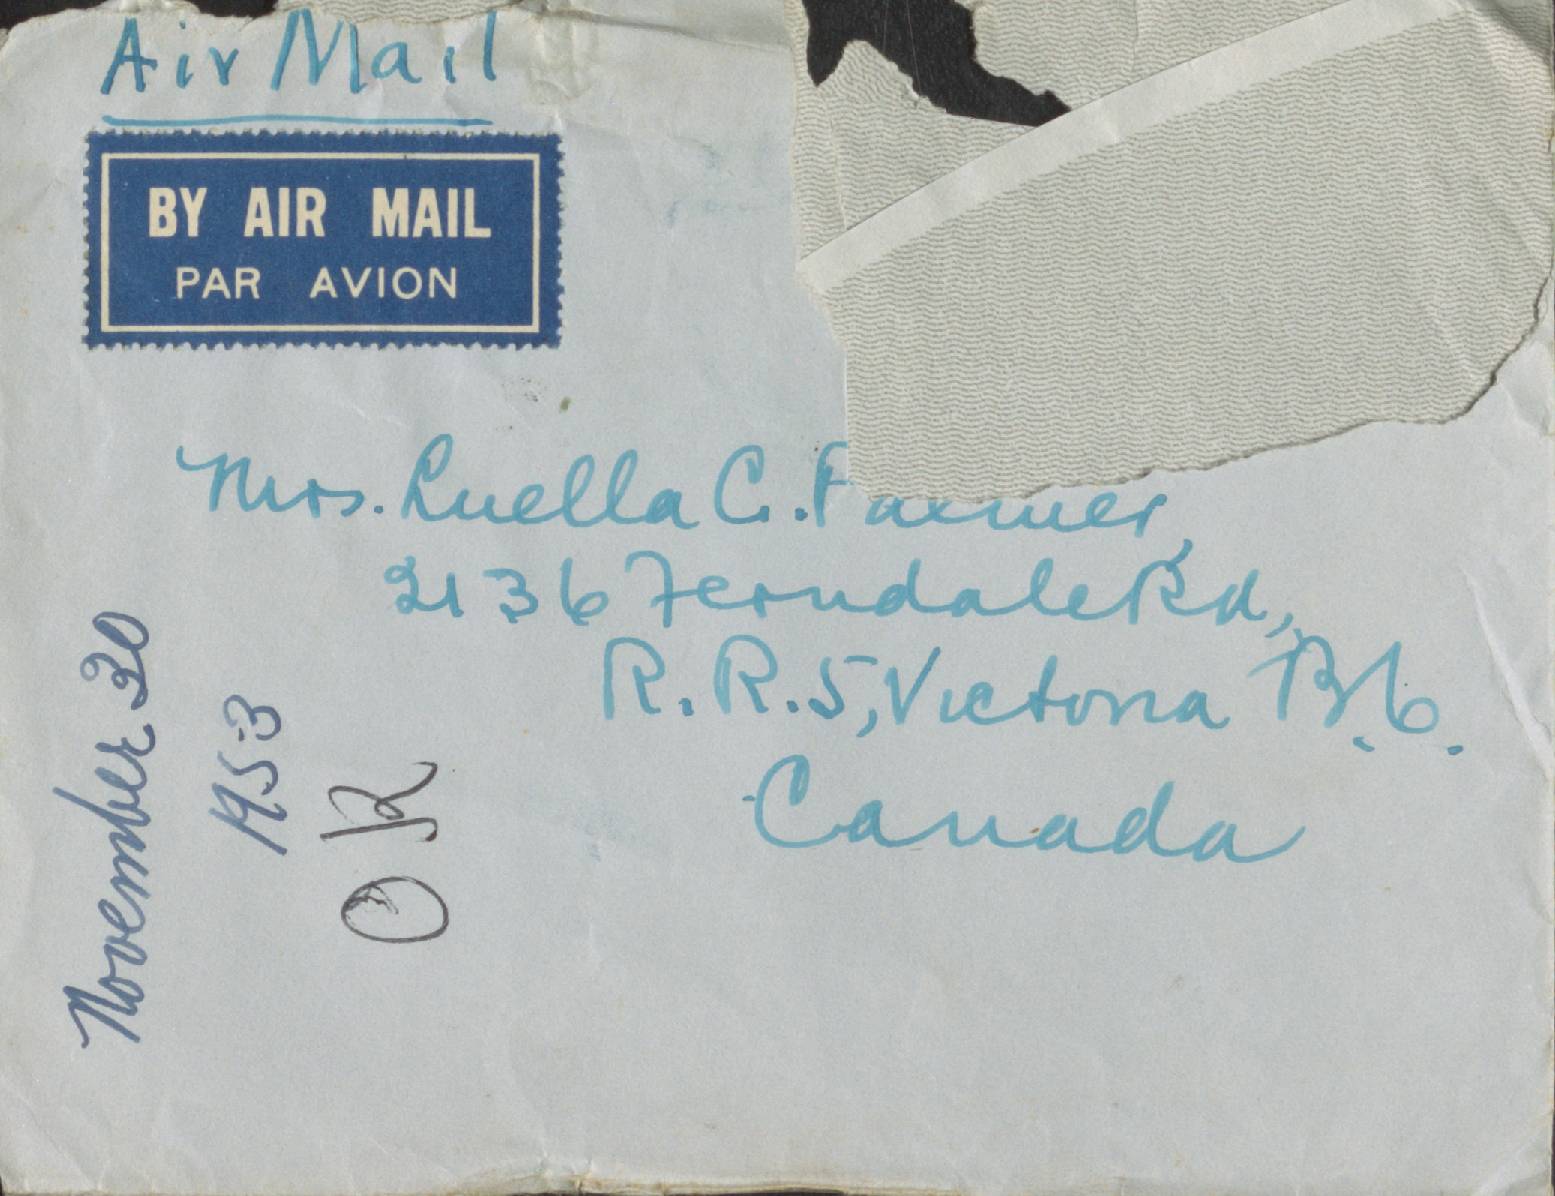 Air Mail
BY AIR MAIL
PAR AVION
Mrs. Luella C. Palmer,
2136 Ferndale Rd,
R.R.5, Victoria B.C.
Canada
November 30
1953
OK